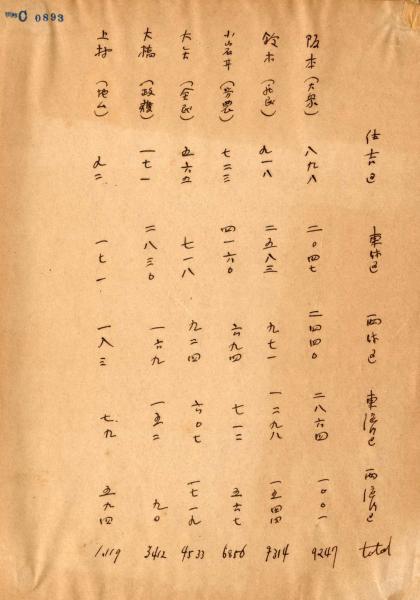 住吉区 東成区 西成区 東淀川区 西淀川区 total
阪本（大衆） 八九八 二〇四七 二四四〇 二八六四 一〇〇一 9247
鈴木（社民） 九一八 二五八三 九七一 一二九八 一五四四 7314
小岩井（労農） 七二三 四一六〇 六九四 七一二 五六七 6856
大矢（全民） 五六五 七一八 九二四 六〇七 一七一九 4533
大橋（政獲） 一七一 二八三〇 一六九 一五二 九〇 3412
上村 九二 一七一 一八三 七九 五九四 1,119
C 0893